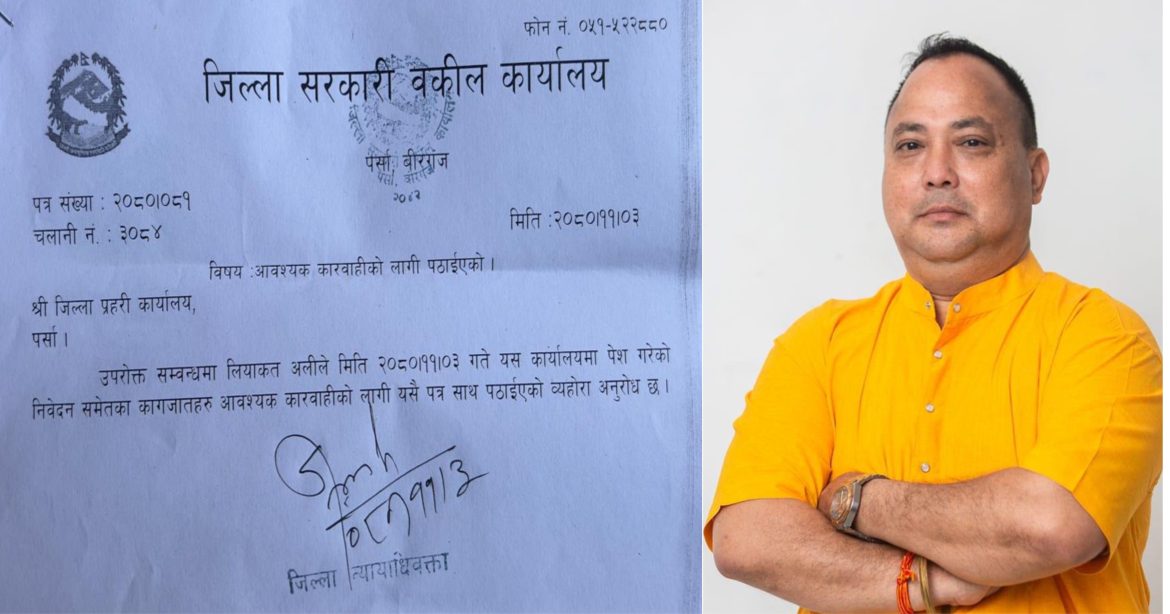 फोन नं. ०५१-५२२८८०
जिल्ला सरकारी वकील कार्यालय
पर्सा, बीरगंज
२०४२
पत्र संख्या : २०८०।०८१
मिति :२०८०।११।०३
चलानी नं. : ३०८४
विषय :आवश्यक कारवाहीको लागी पठाईएको ।
श्री जिल्ला प्रहरी कार्यालय,
पर्सा ।
उपरोक्त सम्वन्धमा लियाकत अलीले मिति २०८०।११।०३ गते यस कार्यालयमा पेश गरेको
निवेदन समेतका कागजातहरु आवश्यक कारवाहीको लागी यसै पत्र साथ पठाईएको व्यहोरा अनुरोध छ ।
जिल्ला न्यायाधिवक्ता